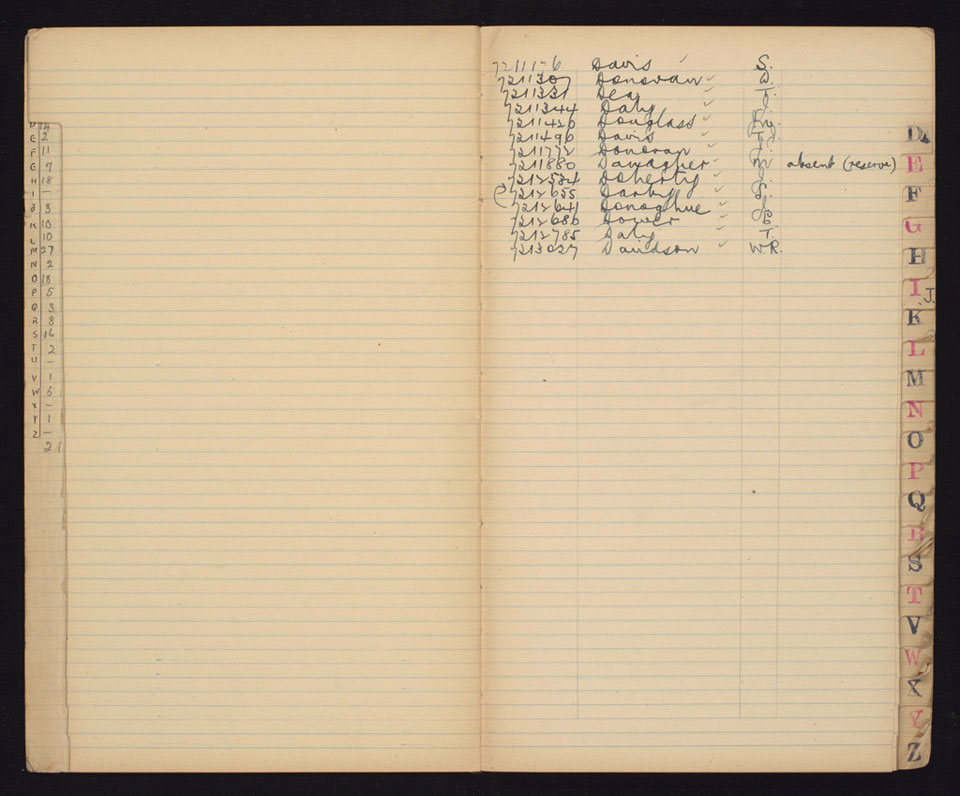 D 14
E 2
F 11
G 7
H 18
I –
J 3
K 10
L 10
M 27
N 2
O 18
P 5
Q 3
R 8
S 16
T 2
U –
V 1
W 5
X –
Y 1
Z –
Davis ✓ S.
721130 Donovan ✓ D.
7211331 Dea ✓ T.
7211344 Daly ✓ J.
7211420 Douglass ✓
7211490 Davis ✓
Donovan ✓ J.
7211880 Danagher ✓ M absent (reserve)
7212534 Doherty ✓ J.
7212655 Darby ✓ S.
7212641 Donoghue ✓ J
7212680 Dower ✓
7212785 Daly ✓ T.
7213027 Davidson ✓ W.R.
D
E
F
G
H
I J.
K
L
M
N
O
P
Q
R
S
T
V
W
X
Y
Z